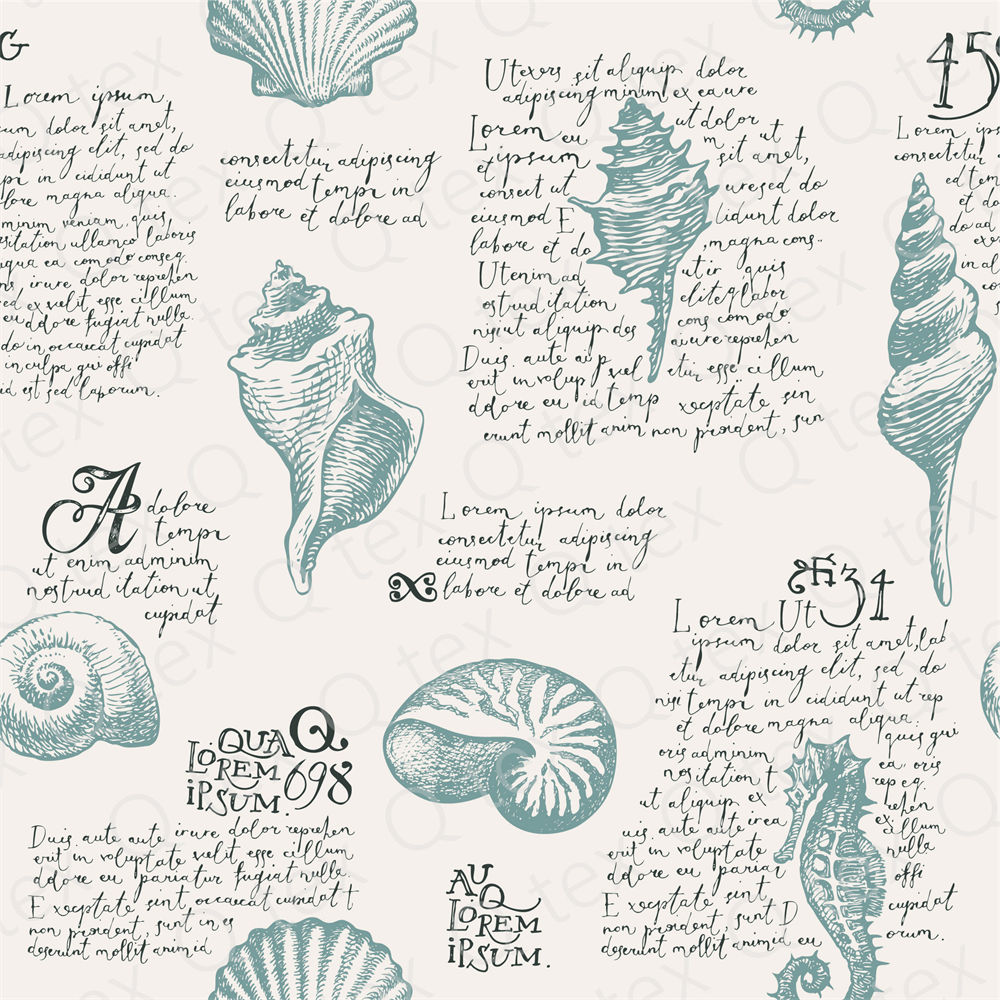 G
Lorem ipsum,
cum dolor sit amet,
adipiscing elit, sed do
in cididunt ut
lore magna aliqua.
minim veniam, quis
sitation ullamco laboris
ea comodo conseq.
irure dolor reprehen
ex velit esse cillum
eu dolore fugiat nulla.
do in occaecat cupidat
in culpa qui offi
id est sed laborum.
consectetur adipiscing
eiusmod tempr in
labore et dolore ad
Utexers sit aliquip dolor
adipiscing minim ex eaure
Lorem eu ut dolor ut t
et ipsum m sit amet,
consect ut uresed do
eiusmod E lidunt dolor
labore et do , magna cons..
Utenim ad utir quis
ostrud itation elit q labor
nisiut aliquip dos cons comodo
Duis aute ai p aiure reprehen
erit in volup vel etur esse cillum
dolore eu id temp xceptate sin
erunt mollit anim non proident, sun
450
Lorem ips
consectet
ed tem
A dolore
tempr
ut enim adminim
nostrud itation ut
cupidat
Lorem ipsum dolor
consectetur adipiscing
eiusmod tempr in
labore et dolore ad
34
Lorem Ut
ipsum dolor sit amet, lab
etur adipiscing elit, sed do
nisi tempr in cididunt ut rep
et dolore magna aliqua.
quis qui
oris adminim ea oris
nositation t rep eq.
ut aliquip ex rehen
uis aute aute irea ex cillum
erit in voluptate nulla.
dolore eu pariatur offi
Exceptate sint, cupidat
non proident, sunt D orum.
deserunt mollit animid eu
QUA Q
LOREM 698
iPSUM.
Duis aute aute irure dolor reprehen
erit in voluptate velit esse cillum
dolore eu pariatur fugiat nulla.
Exceptate sint, occaecat cupidat t
non proident, sunt in es
deserunt mollit animid
AU
Q
LOREM
iPSUM.